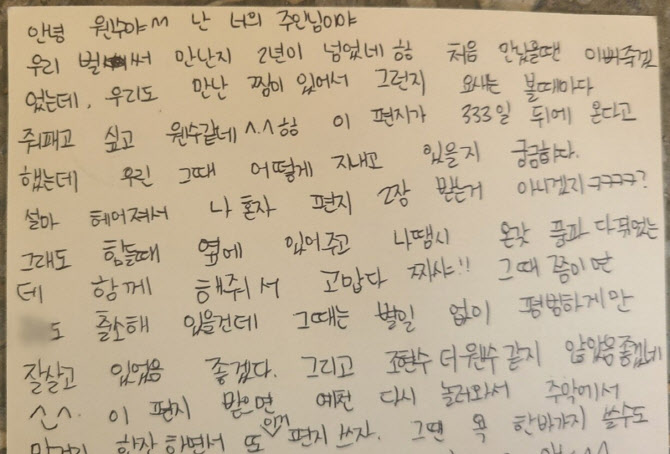 안녕 원수야^^ 난 너의 주인님이야
우리 벌써 만난지 2년이 넘었네 ㅎㅎ 처음 만났을땐 이뻐죽겠
었는데, 우리도 만난 찜이 있어서 그런지 요새는 볼때마다
줘패고 싶고 원수같네^^ㅎㅎ 이 편지가 333일 뒤에 온다고
했는데 우린 그때 어떻게 지내고 있을지 궁금하다.
설마 헤어져서 나 혼자 편지 2장 받는거 아니겠지ㅋㅋㅋㅋ?
그래도 힘들때 옆에 있어주고 나땜시 온갖 풍파 다겪었는
데 함께 해줘서 고맙다 짜샤!! 그때 쯤이면
도 출소해 있을건데 그때는 별일 없이 평범하게만
잘살고 있었음 좋겠다. 그리고 조현수 더 원수 같지 않았음좋겠네
^^. 이 편지 받으면 예전 다시 놀러와서 주막에서
한잔하면서 또 편지 쓰자. 그땐 욕 한바가지 쓸수도